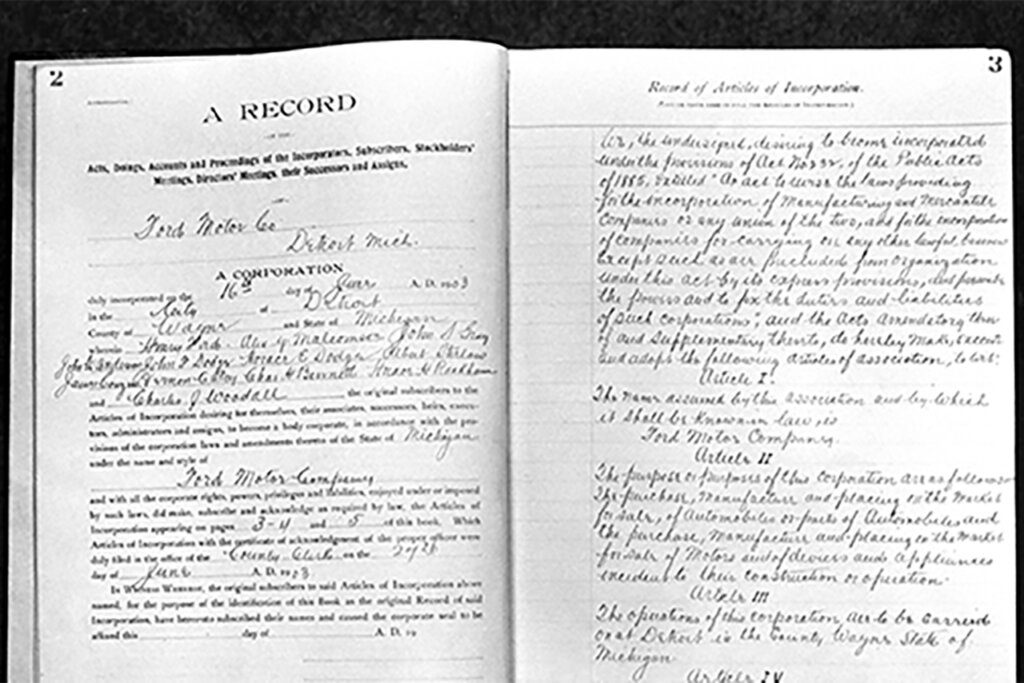 2
A RECORD
OF THE
Acts, Doings, Accounts and Proceedings of the Incorporators, Subscribers, Stockholders'
Meetings, Directors' Meetings, their Successors and Assigns,
OF
Ford Motor Co
Detroit Mich.
A CORPORATION
duly incorporated on the 16th day of June A. D. 1903
in the City of Detroit
County of Wayne and State of Michigan
wherein Henry Ford - Alex Y Malcomson John S Gray
John F Dodge - Horace E Dodge Albert Strelow
Vernon C Fry Chas H Bennett
and Charles J. Woodall the original subscribers to the
Articles of Incorporation desiring for themselves, their associates, successors, heirs, execu-
tors, administrators and assigns, to become a body corporate, in accordance with the pro-
visions of the corporation laws and amendments thereto of the State of Michigan
under the name and style of
Ford Motor Company
and with all the corporate rights, powers, privileges and liabilities, enjoyed under or imposed
by such laws, did make, subscribe and acknowledge as required by law, the Articles of
Incorporation appearing on pages 3-4 and 5 of this book. Which
Articles of Incorporation with the certificate of acknowledgment of the proper officer were
duly filed in the office of the County Clerk on the
day of June A. D. 1903
IN WITNESS WHEREOF, the original subscribers to said Articles of Incorporation above
named, for the purpose of the identification of this Book as the original Record of said
Incorporation, have hereunto subscribed their names and caused the corporate seal to be
affixed this day of A. D. 19
3
Record of Articles of Incorporation.
We, the undersigned, desiring to become incorporated
under the provisions of Act No 232, of the Public Acts
of 1885, entitled "An act to revise the laws providing
for the incorporation of Manufacturing and Mercantile
Companies or any union of the two, and for the incorporation
of companies for carrying on any other lawful business
except such as are precluded from organization
under this act by its express provisions, and to prescribe
the powers and to fix the duties and liabilities
of such corporations", and the Acts amendatory thereof
of and supplementary thereto, do hereby make, execute
and adopt the following articles of association, to wit:
Article I.
The name assumed by this association and by which
it shall be known in law, is
Ford Motor Company.
Article II
The purpose or purposes of this corporation are as follows
The purchase, manufacture and placing on the market
for sale, of Automobiles or parts of Automobiles and
the purchase, manufacture and placing on the market
for sale of Motors and of devices and appliances
incident to their construction or operation.
Article III
The operations of this corporation are to be carried
on at Detroit in the County Wayne State of
Michigan
Article IV